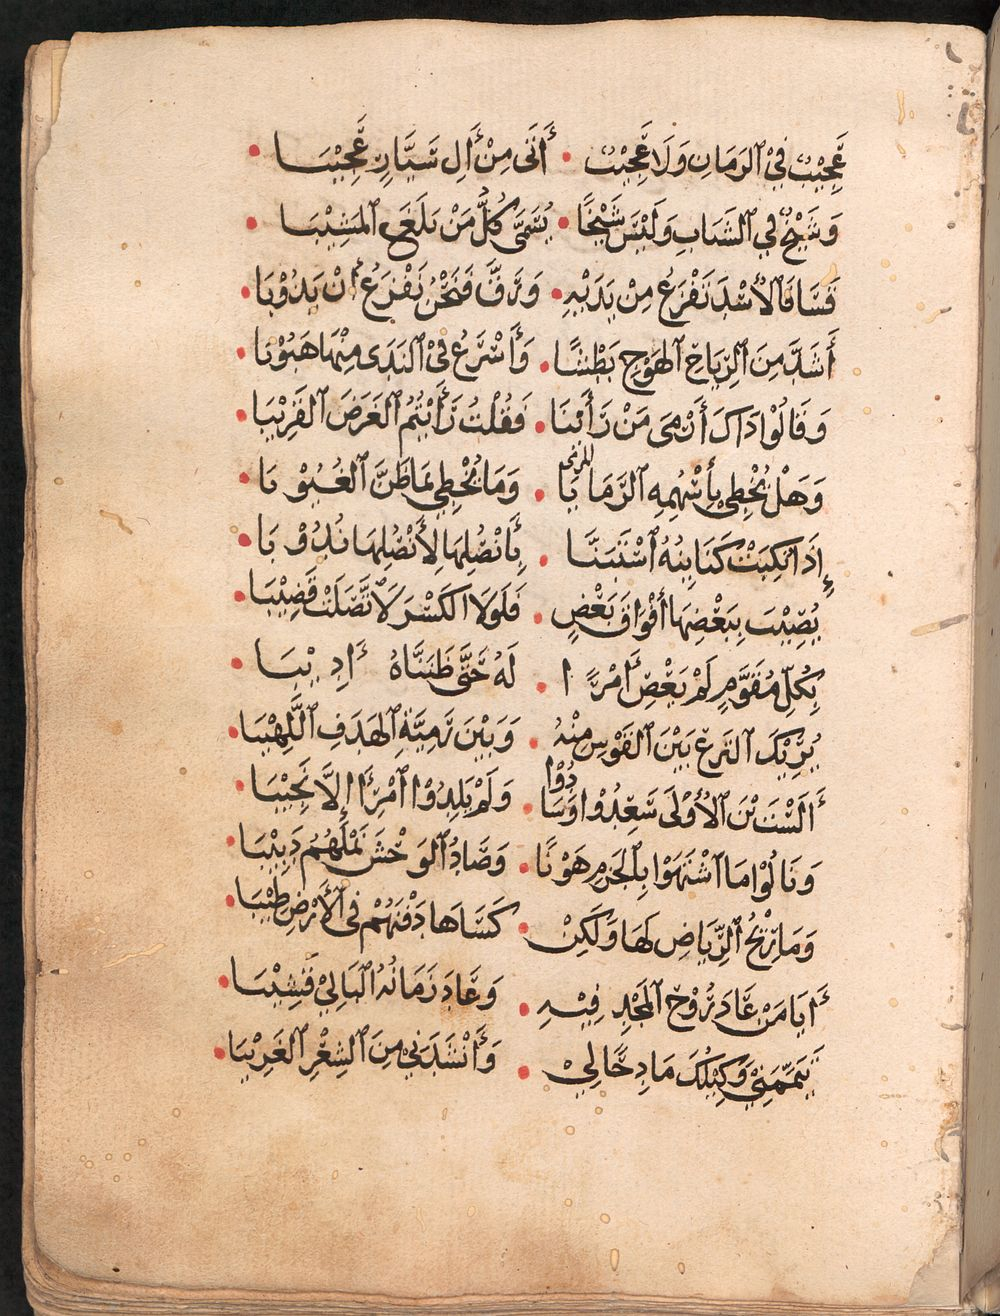 عَجِيْبٌ فِيْ ٱلزَمَانِ وَلَا عَجِيْبٌ • أَتَى مِنْ أَالِ سَيَّارٍ عَجِيْبَا •
وَشَيْخٌ فِي ٱلشَبَابِ وَلَيْسَ شَيْخًا • يُسَمَّى كُلُّ مَنْ بَلَغَ ٱلمَشِيْبَا •
قَسَا فَٱلْأُسْدُ تَفْزَعُ مِنْ يَدَيْهِ • وَرَقَّ فَنَحْنُ نَفْزَعُ أَنْ يَذُوْبَا •
أَشَدُّ مِنَ ٱلرِيَاحِ ٱلهَوْجِ بَطْشًا • وَأَسْرَعُ فِيْ ٱلنَدَى مِنْهَا هَبُوْبَا •
وَقَالُوْا ذَاكَ أَرْمَى مَنْ رَأَيْنَا • فَقُلْتُ رَأَيْتُمُ ٱلغَرَضَ ٱلقَرِيْبَا •
وَهَلْ يُخْطِي بِأَسْهُمِهِ ٱلرَمَايَا • وَمَا يُخْطِي بِمَا ظَنَّ ٱلغُيُوْبَا •
إِذَا نُكِبَتْ كَنَايِنُهُ ٱسْتَبَنَّا • بِأَنْصُلِهَا لِأَنْصُلِهَا نُدُوْبَا •
يُصِيْبُ بِبَعْضِهَا أَفْوَاقَ بَعْضٍ • فَلَوْلَا الكَسْرُ لَاتَّصَلَتْ قَضِيْبَا •
بِكُلِّ مُقَوَّمٍ لَمْ يَعْصِ أَمْرًا • لَهُ حَتَّى ظَنَنَّاهُ أَدِيْبَا •
يُرِيْكَ ٱلنَزْعُ بَيْنَ ٱلقَوْسِ مِنْهُ • وَبَيْنَ رَمِيَّةِ ٱلهَدَفِ ٱللَّهِيْبَا •
أَلَسْتَ بْنَ ٱلْأُوْلَى سَعِدُوْا وَسَادُوْا • وَلَمْ يَلِدُوْا ٱمْرِءًا إِلَّا نَجِيْبَا •
وَنَالُوْا مَا ٱشْتَهَوْا بِٱلحَزْمِ هَوْنًا • وَصَادَ ٱلوَحْشَ نَمْلُهُمُ دَبِيْبَا •
وَمَا رِيْحُ ٱلرِيَاضِ لَهَا وَلَكِنْ • كَسَاهَا دَفْنُهُمْ فِي ٱلْأَرْضِ طِيْبَا •
أَيَا مَنْ عَادَ رُوْحُ ٱلمَجْدِ فِيْهِ • وَعَادَ زَمَانُهُ ٱلبَالِيْ قَشِيْبَا •
تَيَمَّمَنِيْ وَكِيْلُكَ مَادِحًا لِيْ • وَأَنْشَدَنِيْ مِنَ ٱلشِعْرِ ٱلغَرِيْبَا •